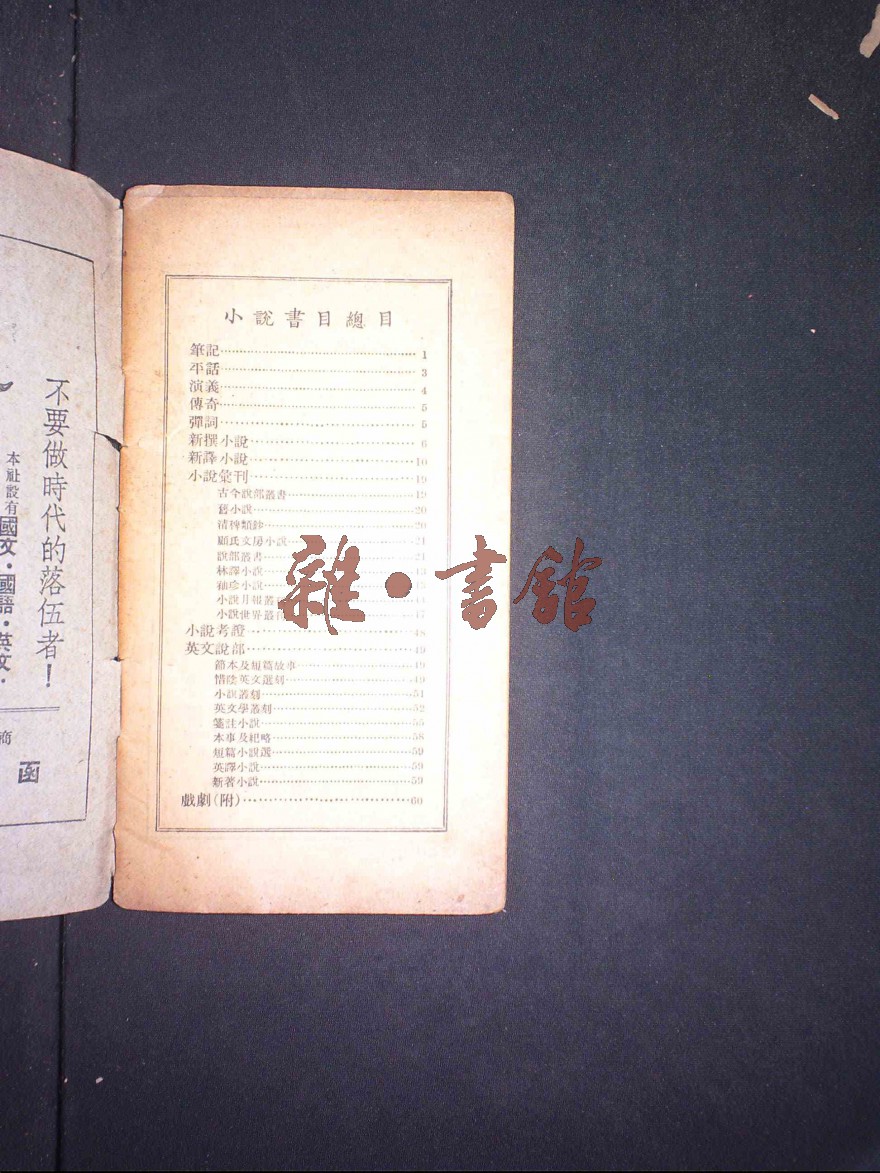 不要做時代的落伍者！
本社設有國文·國語·英文·
商
函
小說書目總目
筆記 1
平話 3
演義 4
傳奇 5
彈詞 5
新撰小說 6
新譯小說 10
小說彙刊 19
古今說部叢書 19
舊小說 20
清稗類鈔 20
顧氏文房小說 21
說部叢書 21
林譯小說
袖珍小說
小說月報叢
小說世界叢
小說考證 48
英文說部 49
節本及短篇故事 49
惜陰英文選刻 49
小說叢刻 51
英文學叢刻 52
箋註小說 55
本事及紀略 58
短篇小說選 59
英譯小說 59
新著小說 59
戲劇(附) 60
雜·書館